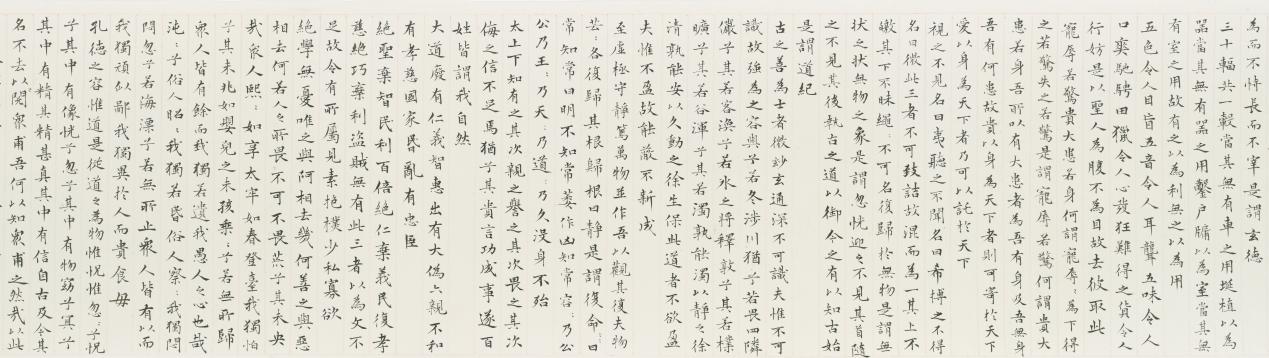 為而不恃長而不宰是謂玄德
三十輻共一轂當其無有車之用埏埴以為
器當其無有器之用鑿戶牖以為室當其無
有室之用故有之以為利無之以為用
五色令人目盲五音令人耳聾五味令人
口爽馳騁田獵令人心發狂難得之貨令人
行妨是以聖人為腹不為目故去彼取此
寵辱若驚貴大患若身何謂寵辱〻為下得
之若驚失之若驚是謂寵辱若驚何謂貴大
患若身吾所以有大患者為吾有身及吾無身
吾有何患故貴以身為天下者則可寄於天下
愛以身為天下者乃可以託於天下
視之不見名曰夷聽之不聞名曰希搏之不得
名曰微此三者不可致詰故混而為一其上不
皦其下不昧繩〻不可名復歸於無物是謂無
狀之狀無物之象是謂忽恍迎之不見其首隨
之不見其後執古之道以御今之有以知古始
是謂道紀
古之善為士者微妙玄通深不可識夫惟不可
識故強為之容與兮若冬涉川猶兮若畏四隣
儼兮其若客渙兮若冰之將釋敦兮其若樸
曠兮其若谷渾兮其若濁孰能濁以靜之徐
清孰能安以久動之徐生保此道者不欲盈
夫惟不盈故能敝不新成
至虛極守靜篤萬物並作吾以觀其復夫物
芸〻各復歸其根歸根曰靜是謂復命〻曰
常知常曰明不知常妄作凶知常容〻乃公
公乃王〻乃天〻乃道〻乃久沒身不殆
太上下知有之其次親之譽之其次畏之其次
侮之信不足焉猶兮其貴言功成事遂百
姓皆謂我自然
大道廢有仁義智惠出有大偽六親不和
有孝慈國家昏亂有忠臣
絕聖棄智民利百倍絕仁棄義民復孝
慈絕巧棄利盜賊無有此三者以為文不
足故令有所屬見素抱樸少私寡欲
絕學無憂唯之與阿相去幾何善之與惡
相去何若人之所畏不可不畏荒兮其未央
哉眾人熙〻如享太牢如春登臺我獨怕
兮其未兆如嬰兒之未孩乘〻兮若無所歸
眾人皆有餘而我獨若遺我愚人之心也哉
沌〻兮俗人昭〻我獨若昏俗人察〻我獨悶
悶忽兮若海漂兮若無所止眾人皆有以而
我獨頑似鄙我獨異於人而貴食母
孔德之容惟道是從道之為物惟恍惟忽〻兮恍
兮其中有像恍兮忽兮其中有物窈兮冥兮
其中有精其精甚真其中有信自古及今其
名不去以閱眾甫吾何以知眾甫之然哉以此